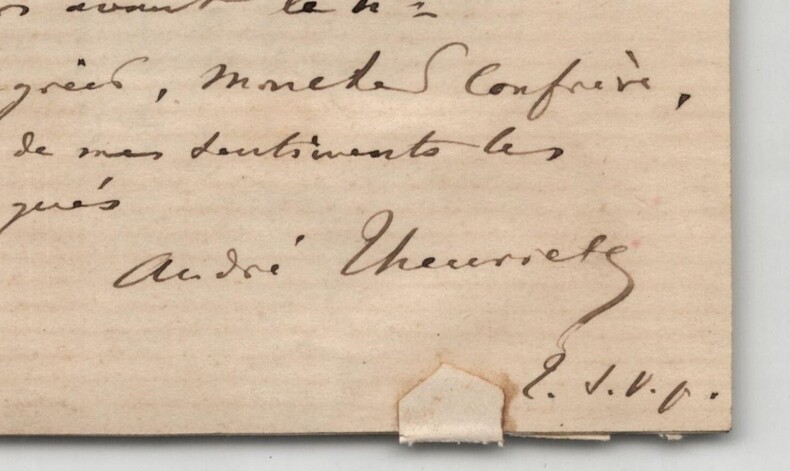 avant le n°
gréer, mon cher Confrère,
de mes sentiments les
gués
André Theuriet
T. S. V. p.